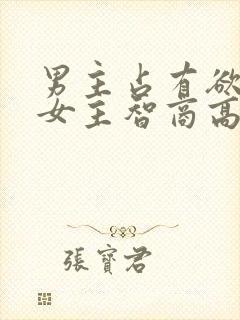 男主占有欲
女主智商高
張寶君